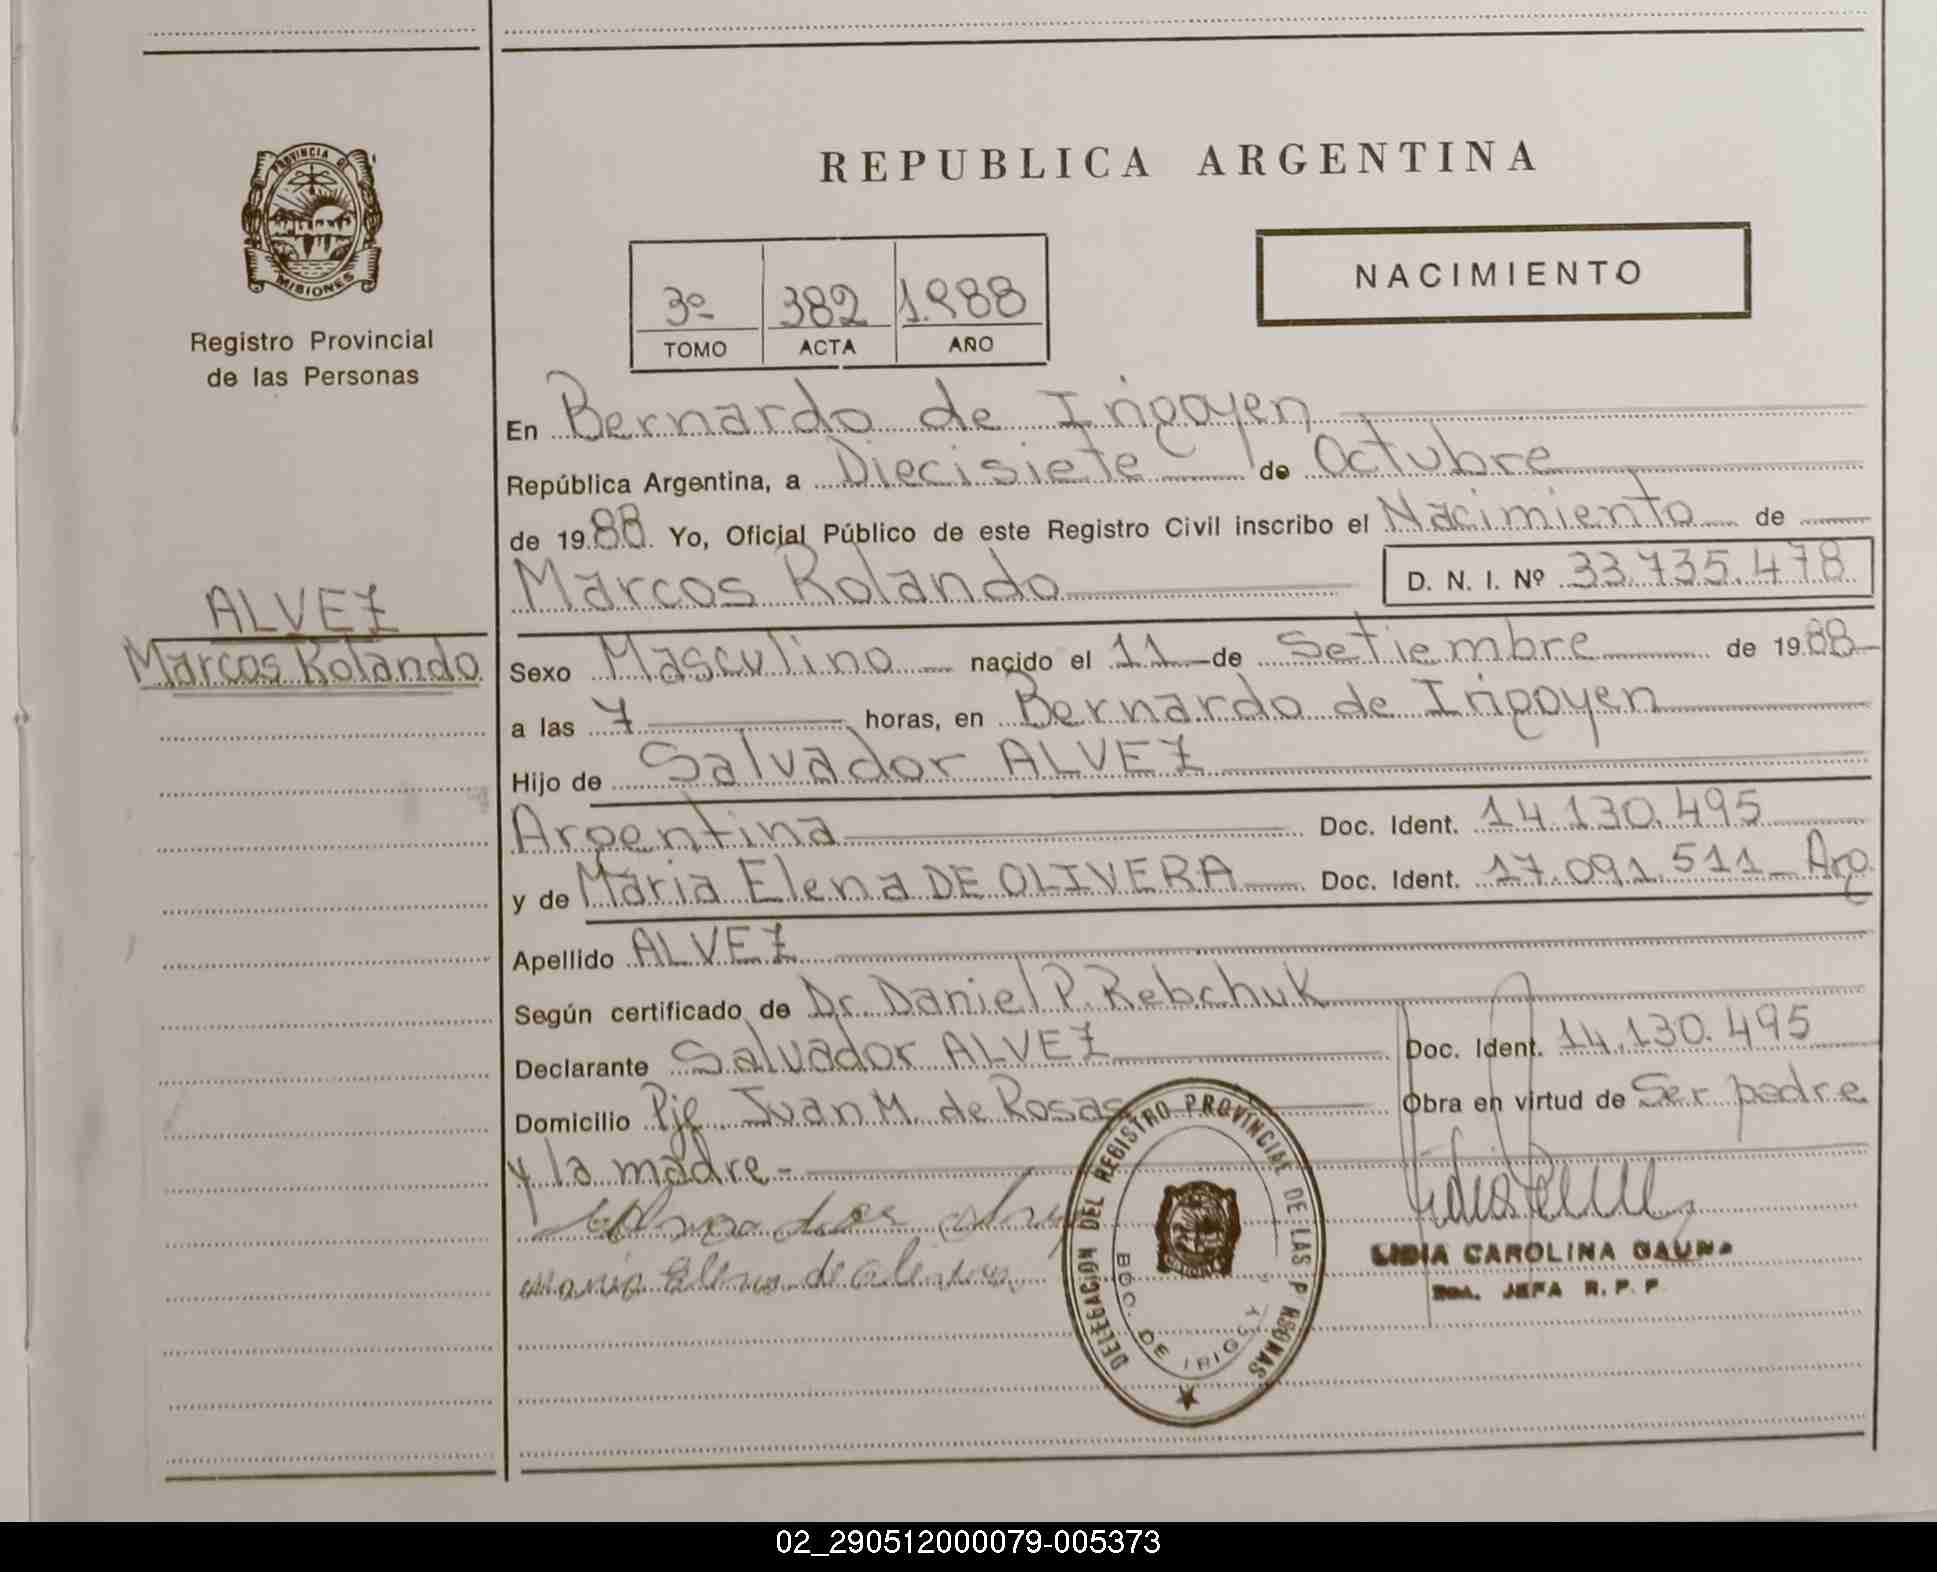 PROVINCIA D
MISIONES
Registro Provincial
de las Personas
ALVEZ
Marcos Rolando
REPUBLICA ARGENTINA
NACIMIENTO
3º 382 1.988
TOMO ACTA AÑO
En Bernardo de Irigoyen
República Argentina, a Diecisiete de Octubre
de 1988. Yo, Oficial Público de este Registro Civil inscribo el Nacimiento de
Marcos Rolando D. N. I. Nº 33.735.478
Sexo Masculino nacido el 11 de Setiembre de 1988
a las 7 horas, en Bernardo de Irigoyen
Hijo de Salvador ALVEZ
Argentina Doc. Ident. 14.130.495
y de Maria Elena DE OLIVERA Doc. Ident. 17.091.511 Arg.
Apellido ALVEZ
Según certificado de Dr. Daniel P. Rebchuk
Declarante Salvador ALVEZ Doc. Ident. 14.130.495
Domicilio Pje Juan M. de Rosas Obra en virtud de Ser padre
y la madre.-
maria Elena de
DELEGACION DEL REGISTRO PROVINCIAL DE LAS P RSONAS
BDO. DE IRIGOY
LIDIA CAROLINA GAUNA
JEFA R. P. P.
02_290512000079-005373